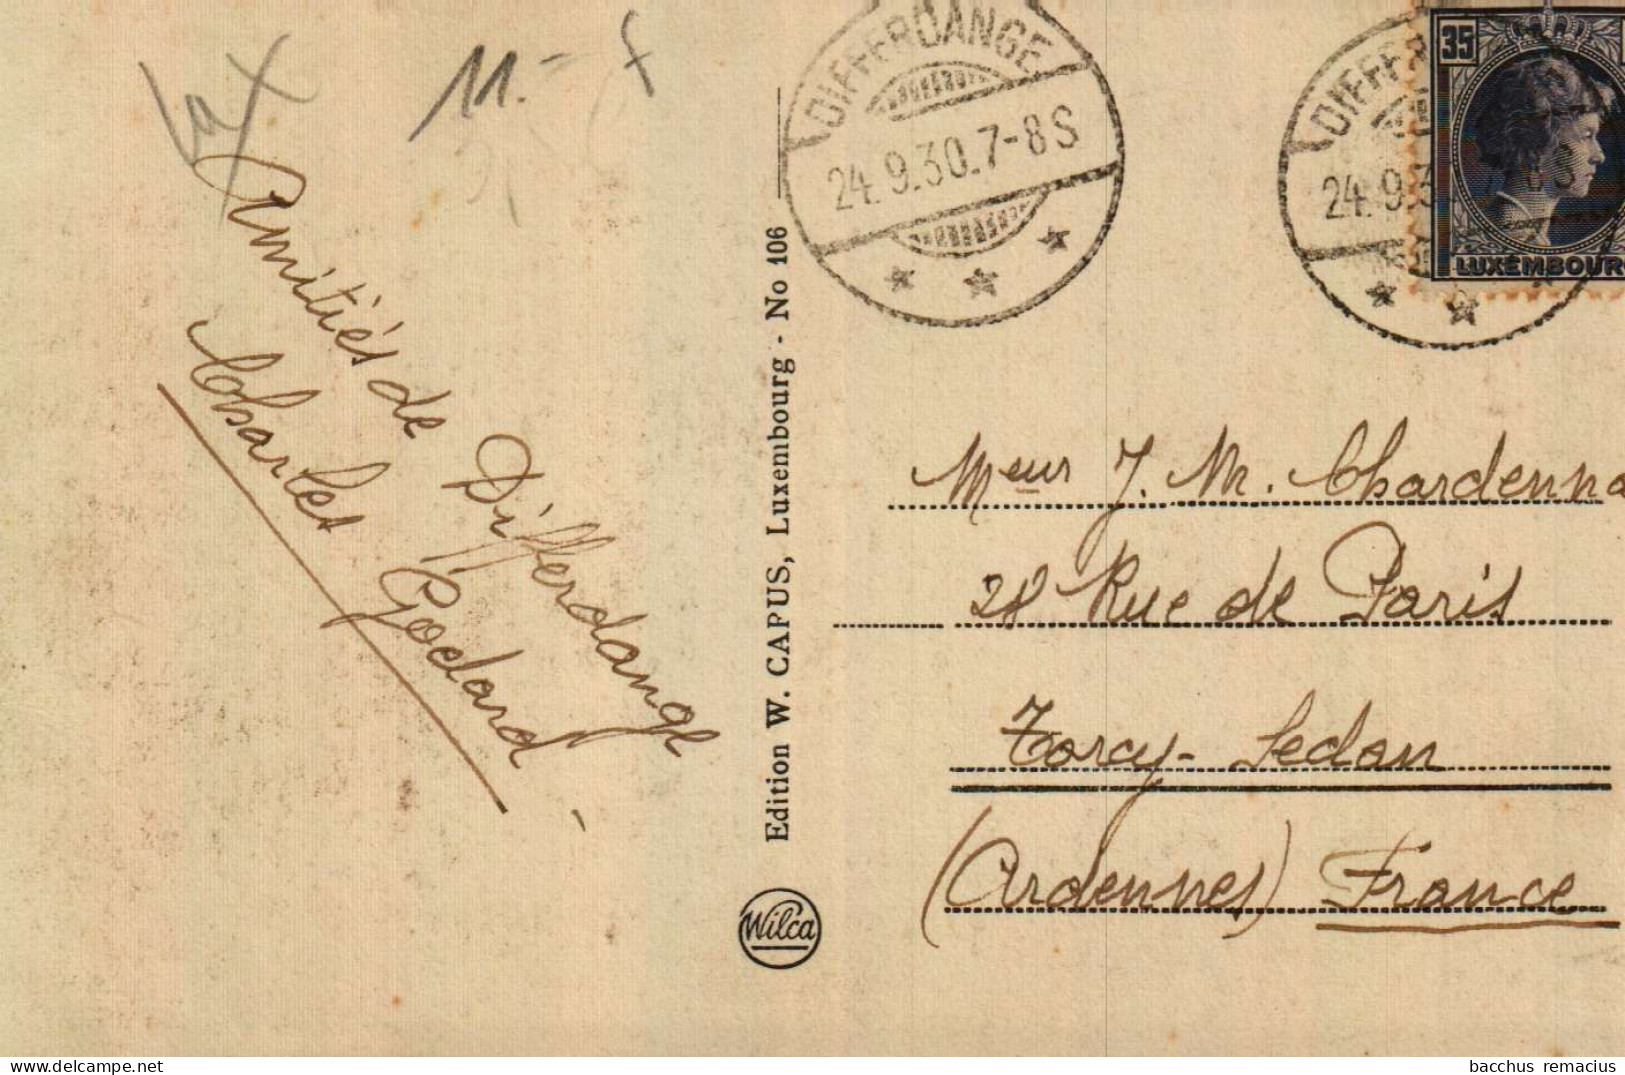 11.- f
Amitiés de Differdange
Charles Godard
Edition W. CAPUS, Luxembourg - No 106
Wilca
DIFFERDANGE
24.9.30.7-8S
DIFFER
24.9.3 8S
35
LUXEMBOURG
Meur J. M. Chardenna
28 Rue de Paris
Torcy-Sedan
(Ardennes) France
bacchus remacius